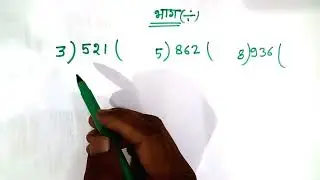 भाग(÷)
3)521( 5)862( 8)936(